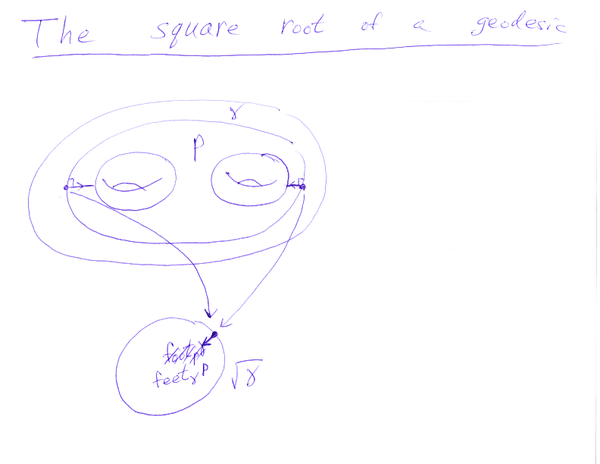 The square root of a geodesic
γ
P
feetγ P
√γ